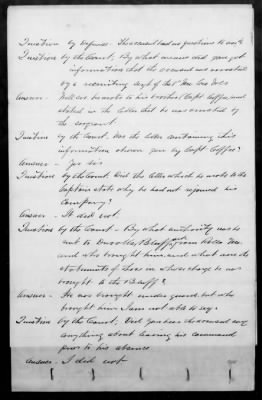 Question by Defense. The accused had no questions to ask
Question by the Court. By what means did you get
information that the accused was enrolled
by a recruiting
Answer - he wrote to his brother Capt. Coffee and
stated in the letter that he was enrolled by
the sergeant.
Question by the Court. Was the letter containing this
information shown you by Capt. Coffee?
Answer - Yes sir
Question by the Court. Did the letter which he wrote to the
Captain state why he had not rejoined his
Company?
Answer - It did not.
Question by the Court - By what authority was he
sent to Duvalls Bluff, from
and who brought him, and what were the
statements of those in whose charge he was
brought to the Bluff?
Answer - He was brought under guard, but who
brought him I am not able to say.
Question by the Court, Did you hear the accused say
anything about leaving his command
prior to his absence
Answer - I did not